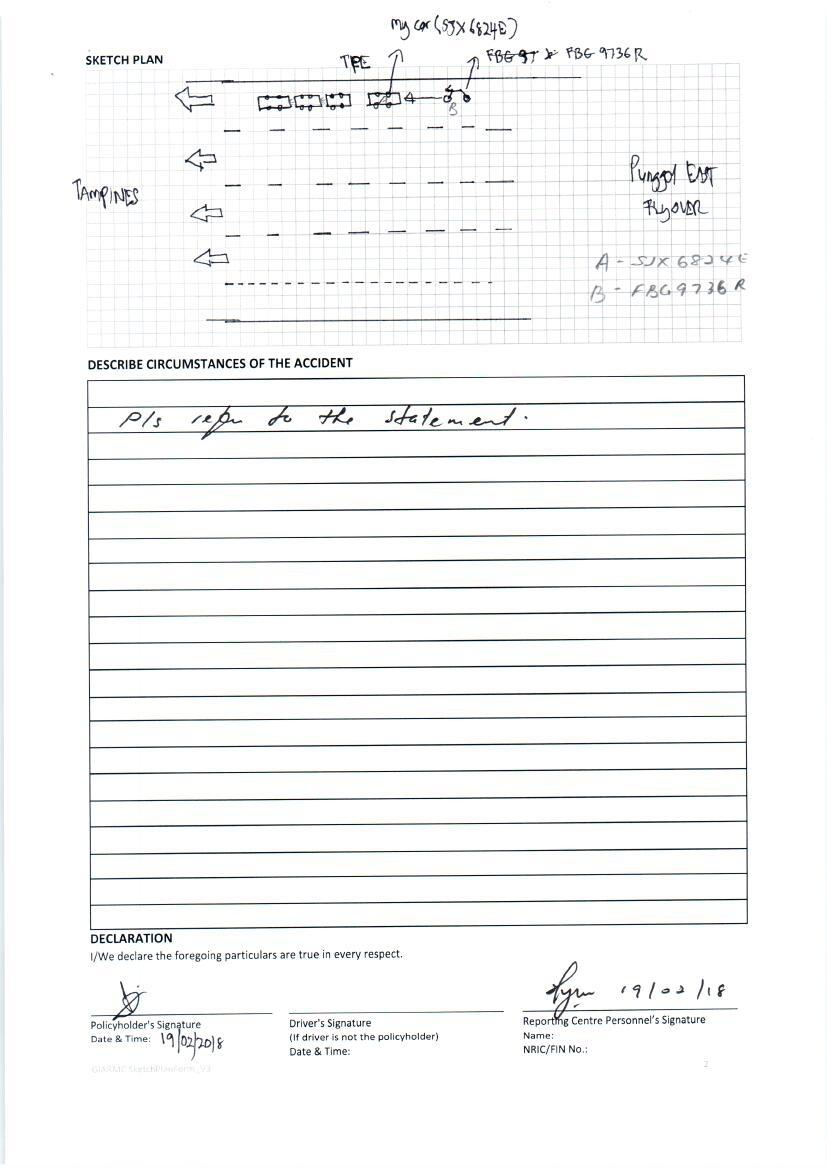 My car (SJX6824E)
SKETCH PLAN
TPE
FBG 9736R
B
TAMPINES
Punggol EAST
FlyOVER
A - SJX6824E
B - FBG9736R
DESCRIBE CIRCUMSTANCES OF THE ACCIDENT
Pls refer to the statement.
DECLARATION
I/We declare the foregoing particulars are true in every respect.
19/02/18
Policyholder's Signature
Date & Time: 19/02/2018
Driver's Signature
(If driver is not the policyholder)
Date & Time:
Reporting Centre Personnel's Signature
Name:
NRIC/FIN No.:
2
GIARMC SketchPlanForm_V3